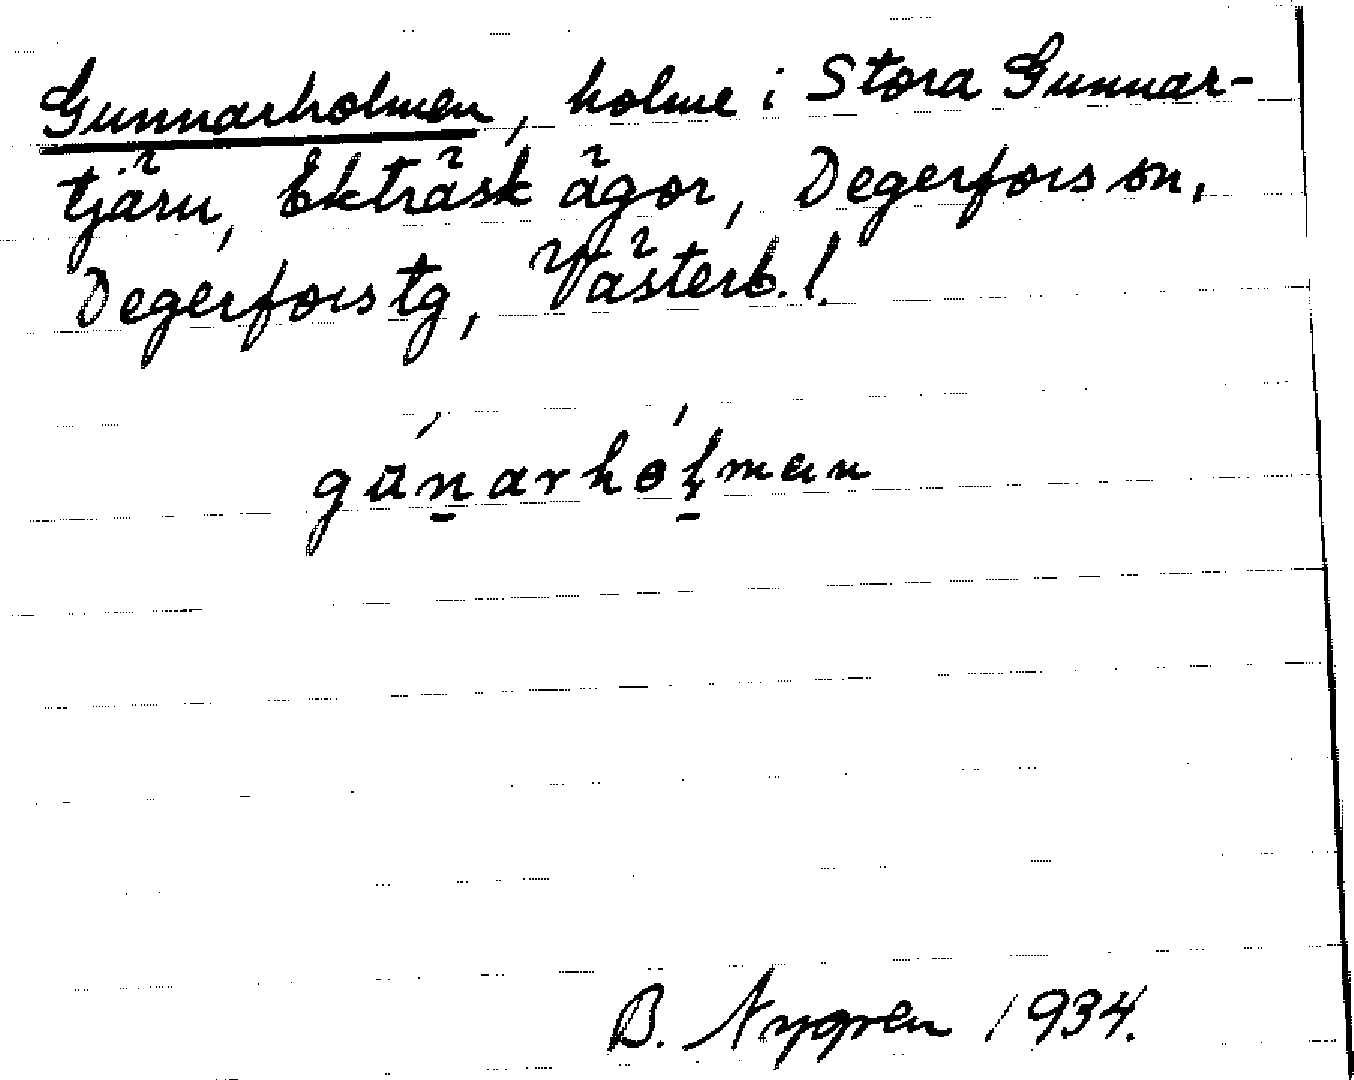 Gunnarholmen, holme i Stora Gunnar-
tjärn, Ekträsk ägor, Degerfors sn,
Degerfors tg, Västerb. l.
gúnarhólman
B. Nygren 1934.